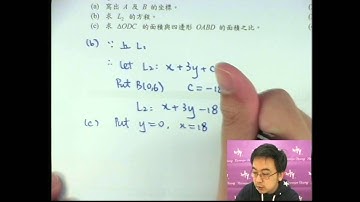 (a) 寫出 A 及 B 的坐標。
(b) 求 L₂ 的方程。
(c) 求 ΔODC 的面積與四邊形 OABD 的面積之比。
(b) ∵ ⊥ L₁
∴ Let L₂: x + 3y + C
Put B(0,6) C = -18
L₂: x + 3y - 18
(c) Put y = 0, x = 18